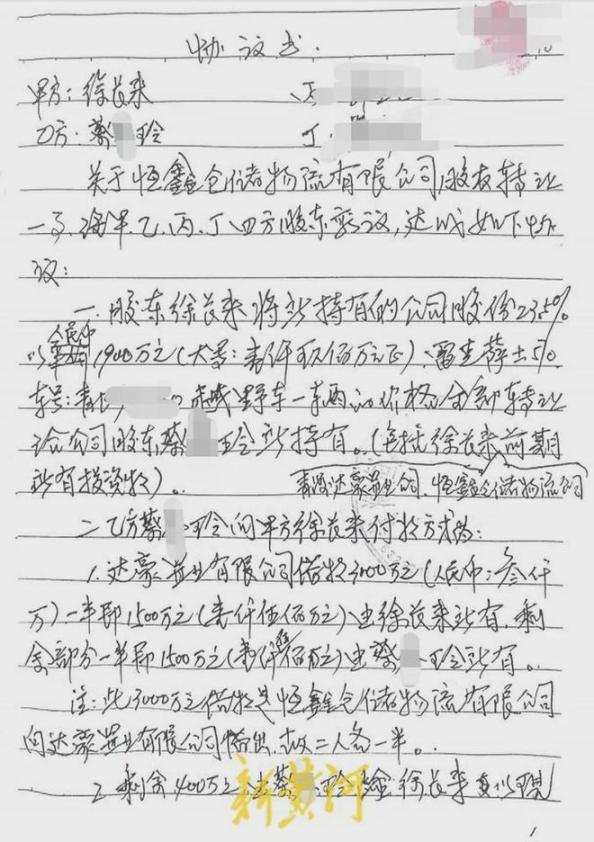 协议书.
甲方:徐长来 丙
乙方:蔡 玲 丁.
关于恒鑫仓储物流有限公司股权转让
一事,海甲、乙、丙、丁四方股东商议,达成如下协
议:
一.股东徐长来将所持有的公司股份23.5%
以 人民币 1900万元(大写:壹仟玖佰万元正)、雷克萨士570
车号:青 越野车一车两的价格全部转让
给公司股东蔡 玲所持有。(包括徐长来前期
所有投资款)。 青海达豪置业公司.恒鑫仓储物流公司
二.乙方蔡 玲向甲方徐长来付款方式为:
1.达豪置业有限公司借款3000万元(人民币:叁仟
万)一半即1500万元(壹仟伍佰万元)由徐长来所有,剩
余部分一半即1500万元(壹仟伍佰万元)由蔡 玲所有。
注:此3000万元借款是恒鑫仓储物流有限公司
向达豪置业有限公司借出.故二人各一半。
2.剩余400万元 由蔡 玲给徐长来 以现
新黄河
1